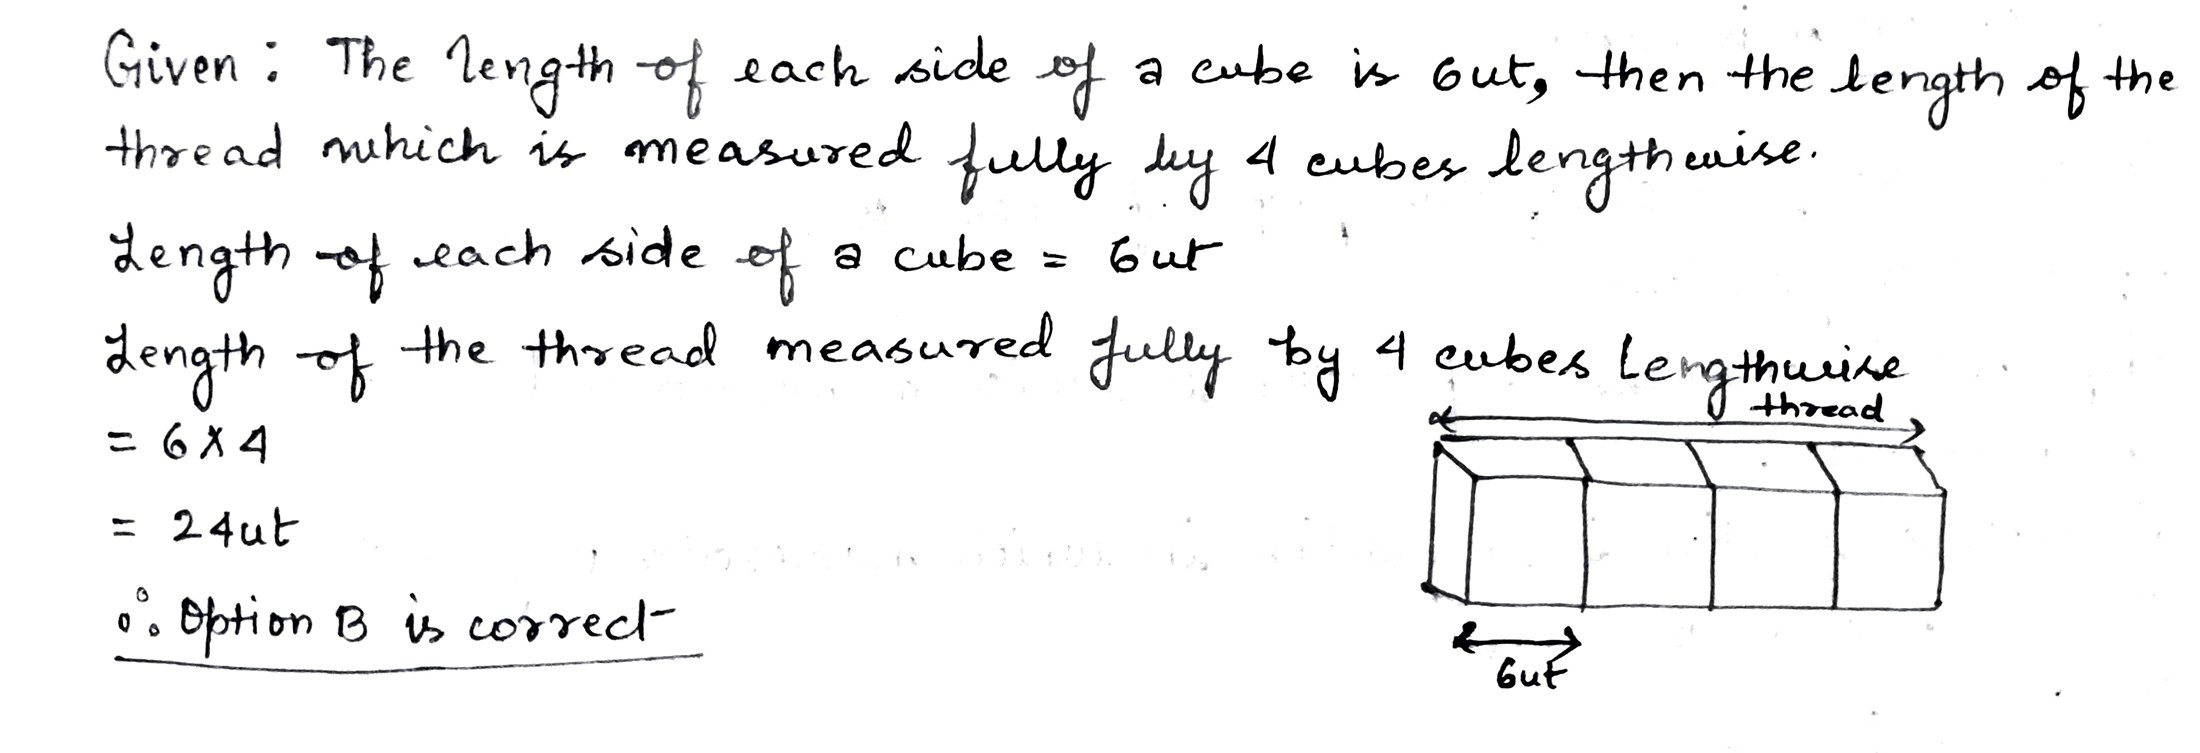 Given : The length of each side of a cube is 6ut, then the length of the
thread which is measured fully by 4 cubes lengthwise.
Length of each side of a cube = 6ut
Length of the thread measured fully by 4 cubes Lengthwise
thread
= 6 x 4
= 24ut
∴ Option B is correct
6ut